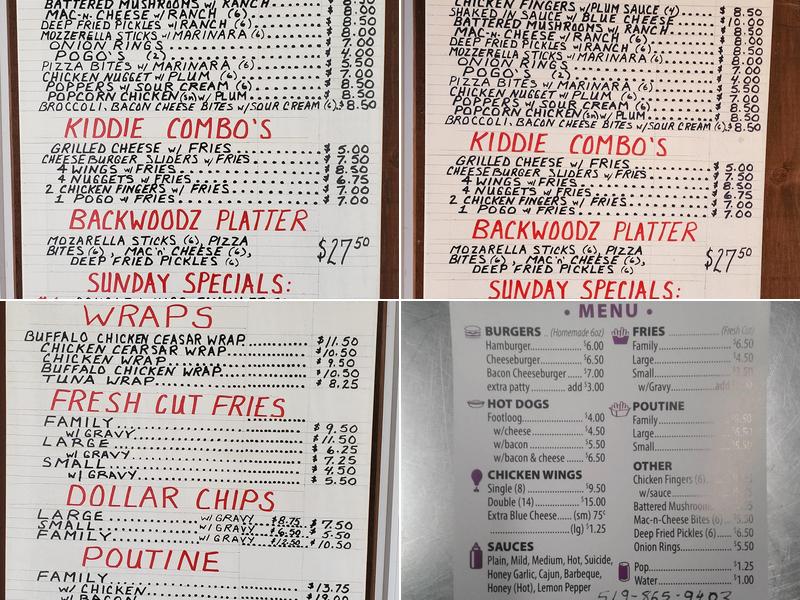 BATTERED MUSHROOMS w/ RANCH
MAC-N-CHEESE w/RANCH (6) $8.50
DEEP FRIED PICKLES w/RANCH (6) 8.00
MOZZERELLA STICKS w/MARINARA (6) 8.00
ONION RINGS 7.00
POGO'S (2) 4.00
PIZZA BITES w/ MARINARA (6) 5.50
CHICKEN NUGGET w/ PLUM (6) 7.00
POPPERS w/ SOUR CREAM (6) 8.50
POPCORN CHICKEN (sm) w/ PLUM 8.50
BROCCOLI. BACON CHEESE BITES w/SOUR CREAM (6) $8.50
KIDDIE COMBO'S
GRILLED CHEESE w/ FRIES $5.00
CHEESEBURGER SLIDERS w/ FRIES $7.50
4 WINGS w/ FRIES $8.50
4 NUGGETS w/ FRIES $6.75
2 CHICKEN FINGERS w/ FRIES $7.00
1 POGO w/ FRIES $7.00
BACKWOODZ PLATTER
MOZARELLA STICKS (6), PIZZA
BITES (6), MAC 'n' CHEESE (6), $27.50
DEEP FRIED PICKLES (6)
SUNDAY SPECIALS:
CHICKEN FINGERS w/PLUM SAUCE (4) 8.50
SHAKED IN SAUCE w/ BLUE CHEESE 10.00
BATTERED MUSHROOMS w/ RANCH 8.00
MAC-N-CHEESE w/RANCH (6) 8.50
DEEP FRIED PICKLES w/RANCH (6) 8.00
MOZZERELLA STICKS w/MARINARA (6) 8.00
ONION RINGS 7.00
POGO'S (2) 4.00
PIZZA BITES w/ MARINARA (6) 5.50
CHICKEN NUGGET w/ PLUM (6) 7.00
POPPERS w/ SOUR CREAM (6) 8.50
POPCORN CHICKEN (sm) w/ PLUM 8.50
BROCCOLI. BACON CHEESE BITES w/SOUR CREAM (6) $8.50
KIDDIE COMBO'S
GRILLED CHEESE w/ FRIES $5.00
CHEESEBURGER SLIDERS w/ FRIES $7.50
4 WINGS w/ FRIES $8.50
4 NUGGETS w/ FRIES $6.75
2 CHICKEN FINGERS w/ FRIES $7.00
1 POGO w/ FRIES $7.00
BACKWOODZ PLATTER
MOZARELLA STICKS (6), PIZZA
BITES (6), MAC 'n' CHEESE (6), $27.50
DEEP FRIED PICKLES (6)
SUNDAY SPECIALS:
WRAPS
BUFFALO CHICKEN CEASAR WRAP $11.50
CHICKEN CEARSAR WRAP $10.50
CHICKEN WRAP $9.50
BUFFALO CHICKEN WRAP $10.50
TUNA WRAP $8.25
FRESH CUT FRIES
FAMILY $9.50
w/ GRAVY $11.50
LARGE $6.25
w/ GRAVY $7.25
SMALL $4.50
w/ GRAVY $5.50
DOLLAR CHIPS
LARGE w/ GRAVY $8.75 $7.50
SMALL w/ GRAVY $6.50 $5.50
FAMILY w/ GRAVY $12.50 $10.50
POUTINE
FAMILY
w/ CHICKEN $13.75
w/ BACON
• MENU •
BURGERS (Homemade 6oz)
Hamburger $6.00
Cheeseburger $6.50
Bacon Cheeseburger $7.00
extra patty add $3.00
HOT DOGS
Footloog $4.00
w/cheese $4.50
w/bacon $5.50
w/bacon & cheese $6.50
CHICKEN WINGS
Single (8) $9.50
Double (14) $15.00
Extra Blue Cheese (sm) 75¢
(lg) $1.25
SAUCES
Plain, Mild, Medium, Hot, Suicide,
Honey Garlic, Cajun, Barbeque,
Honey (Hot), Lemon Pepper
FRIES (Fresh Cut)
Family $6.50
Large $4.50
Small
w/Gravy add
POUTINE
Family
Large
Small
OTHER
Chicken Fingers (6)
w/sauce
Battered Mushrooms
Mac-n-Cheese Bites (6)
Deep Fried Pickles (6) $6.50
Onion Rings $5.50
Pop $1.25
Water $1.00
519-865-9403